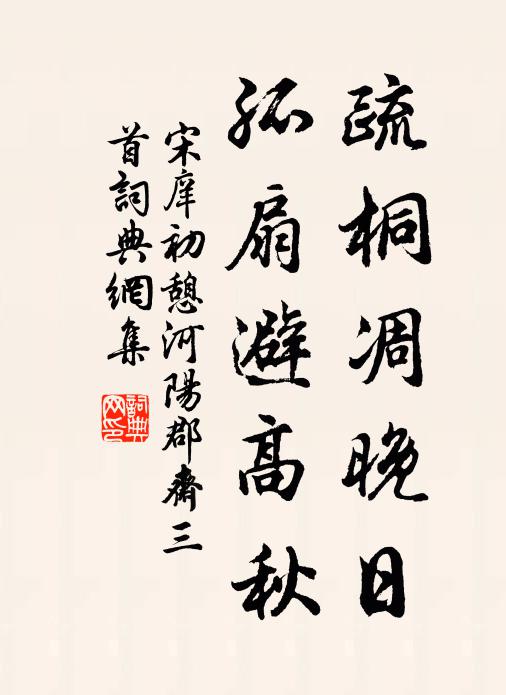 疏桐凋晚日
孤扇避高秋
宋庠初憩河陽郡齋三
首詞典網集
詞典網印